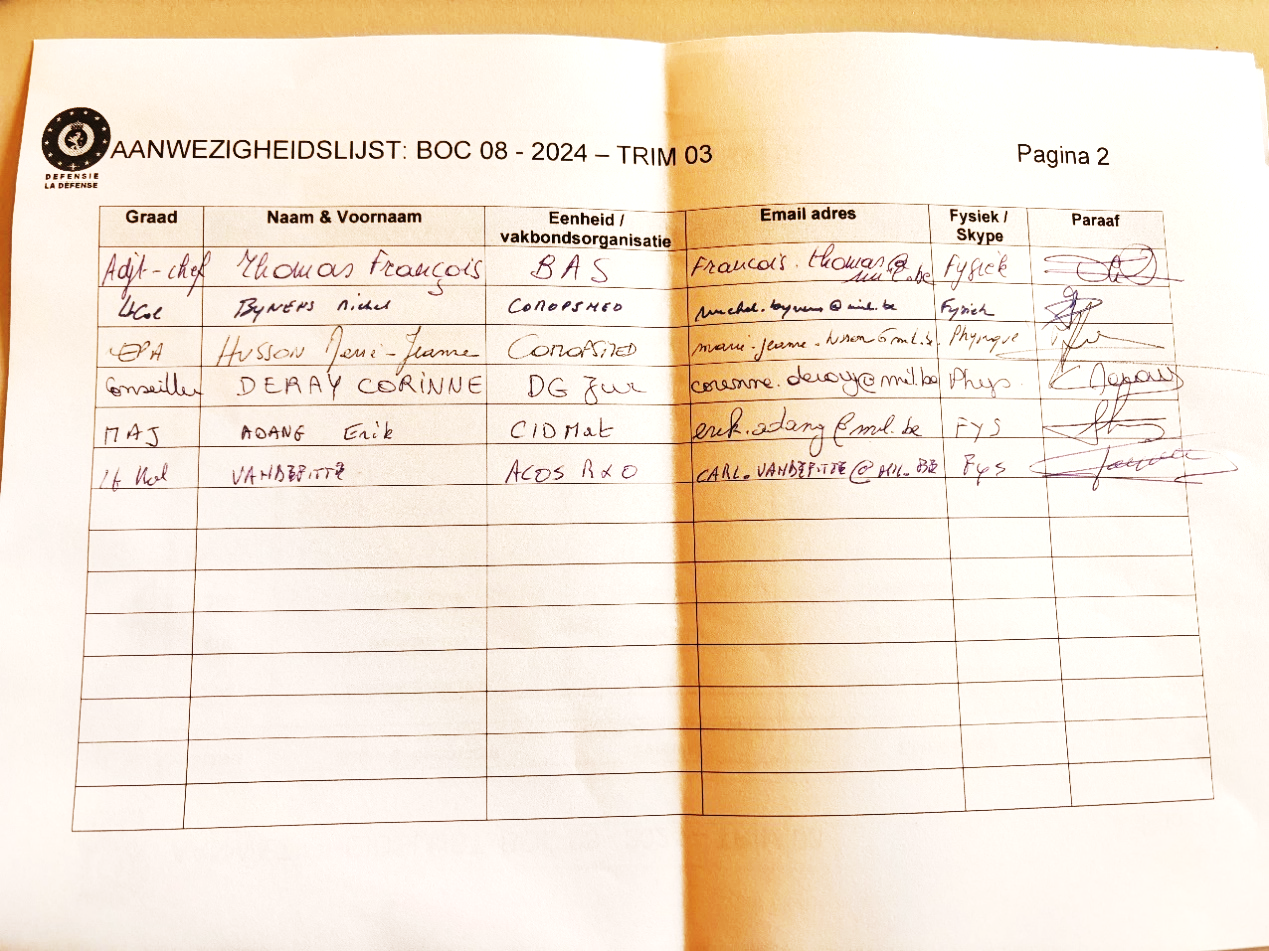 DEFENSIE
LA DEFENSE
AANWEZIGHEIDSLIJST: BOC 08 - 2024 – TRIM 03 Pagina 2
Graad Naam & Voornaam Eenheid / vakbondsorganisatie Email adres Fysiek / Skype Paraaf
Adjt-chef Thomas François BAS Francois.thomas@mil.be Fysiek
BYNENS Michel COMOPSMED michel.bynens@mil.be Fysiek
HUSSON COMOPSMED Physique
Conseiller DERAY CORINNE DG Jur corinne.deray@mil.be Phys.
MAJ ADANG Erik CIDMat erik.adang@mil.be FYS
Lt Kol VANDEPITTE ACOS R&O CARL.VANDEPITTE@MIL.BE Fys